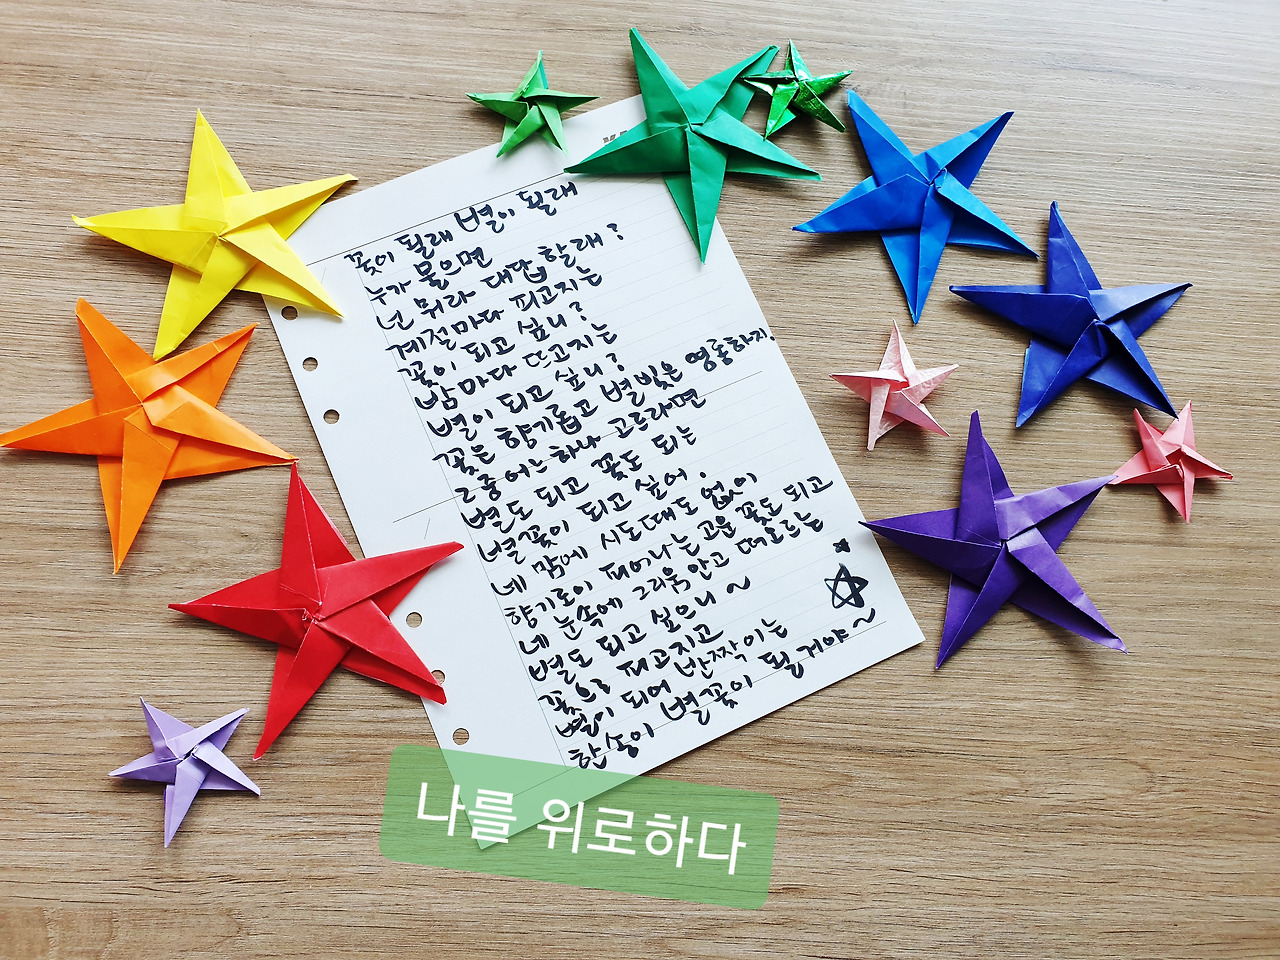 꽃이 될래 별이 될래
누가 물으면
넌 뭐라 대답 할래?
계절마다 피고지는
꽃이 되고 싶니?
밤마다 뜨고지는
별이 되고 싶니?
꽃은 향기롭고 별빛은 영롱하지.
그중에는 하나 고르라면
별도 되고 꽃도 되는
별꽃이 되고 싶어.
네 맘에 시도때도 없이
향기로이 피어나는 고운 꽃도 되고
네 눈속에 그리움 안고 떠오르는
별도 되고 싶으니~
꽃으로 피고지고
별이 되어 반짝이는
한송이 별꽃이 될거야~
나를 위로하다